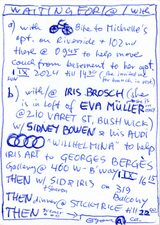 WAITING FOR / WITH
a) with Bike to Michelle's
apt. on Riverside + 102nd
there @ 0945 to help move
couch from basement to her apt,
1 IX 2024 till 1430
b) w/@ IRIS BROSCH (she
is in loft of EVA MÜLLER
@ 210 VARET ST, BUSHWICK)
w/ SIDNEY BOWEN & his AUDI
"WILLHELMINA" to help
IRIS ART to GEORGES BERGÈS
Gallery @ 400 W-B'way 1 IX 1645
THEN w/ SID & IRIS on 319
Balcony
THEN dinner @ STICKY RICE till
THEN